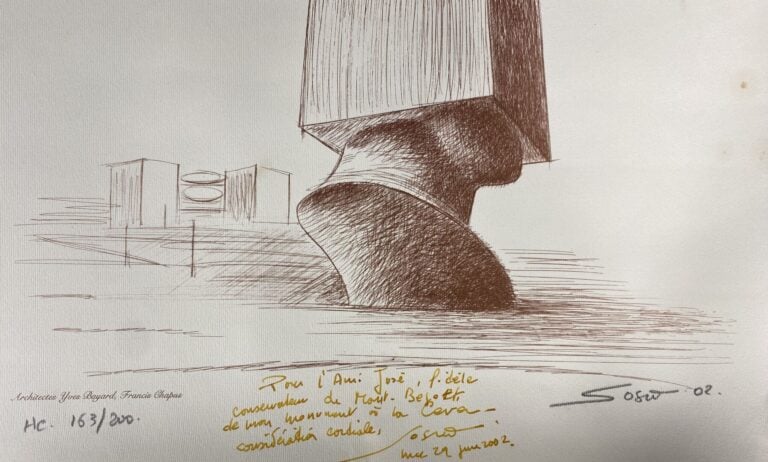 Architectes Yves Bayard, Francis Chapus
HC. 163/200.
Pour l'Ami José, fidèle
conservateur du Mont-Bégo et
de mon monument à la Ceva
considération cordiale,
Sosno
Nice 29 juin 2002.
Sosno 02.